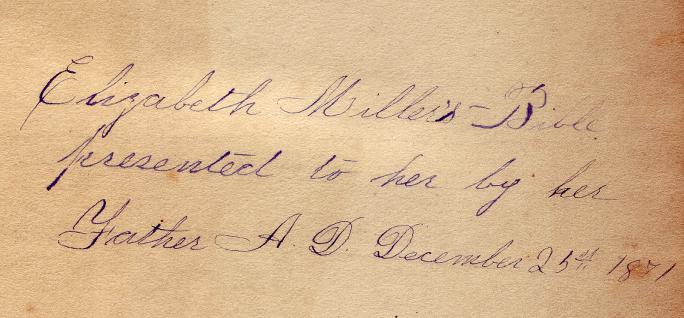 Elizabeth Miller's Bible
presented to her by her
Father A. D. December 25st 1871